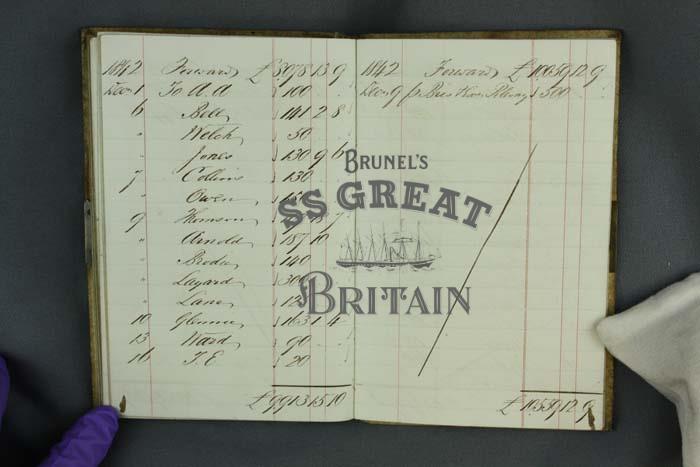 1842 Forward £ 8078 13 9
Decr 1 To A.A 100
6 Bell 141 2 8
" Welch 50
" Jones 130 9 6
7 Collins 130
" Owen
9 Thomson
" Arnold 187 10
" 140
" Layard 300
" Lane
10 1 4
13 Ward 90
16 T.E 20
£ 9913 15 10
1842 Forward £ 10039 12 9
Decr 9 500
£ 10539 12 9
BRUNEL'S
SS GREAT
BRITAIN